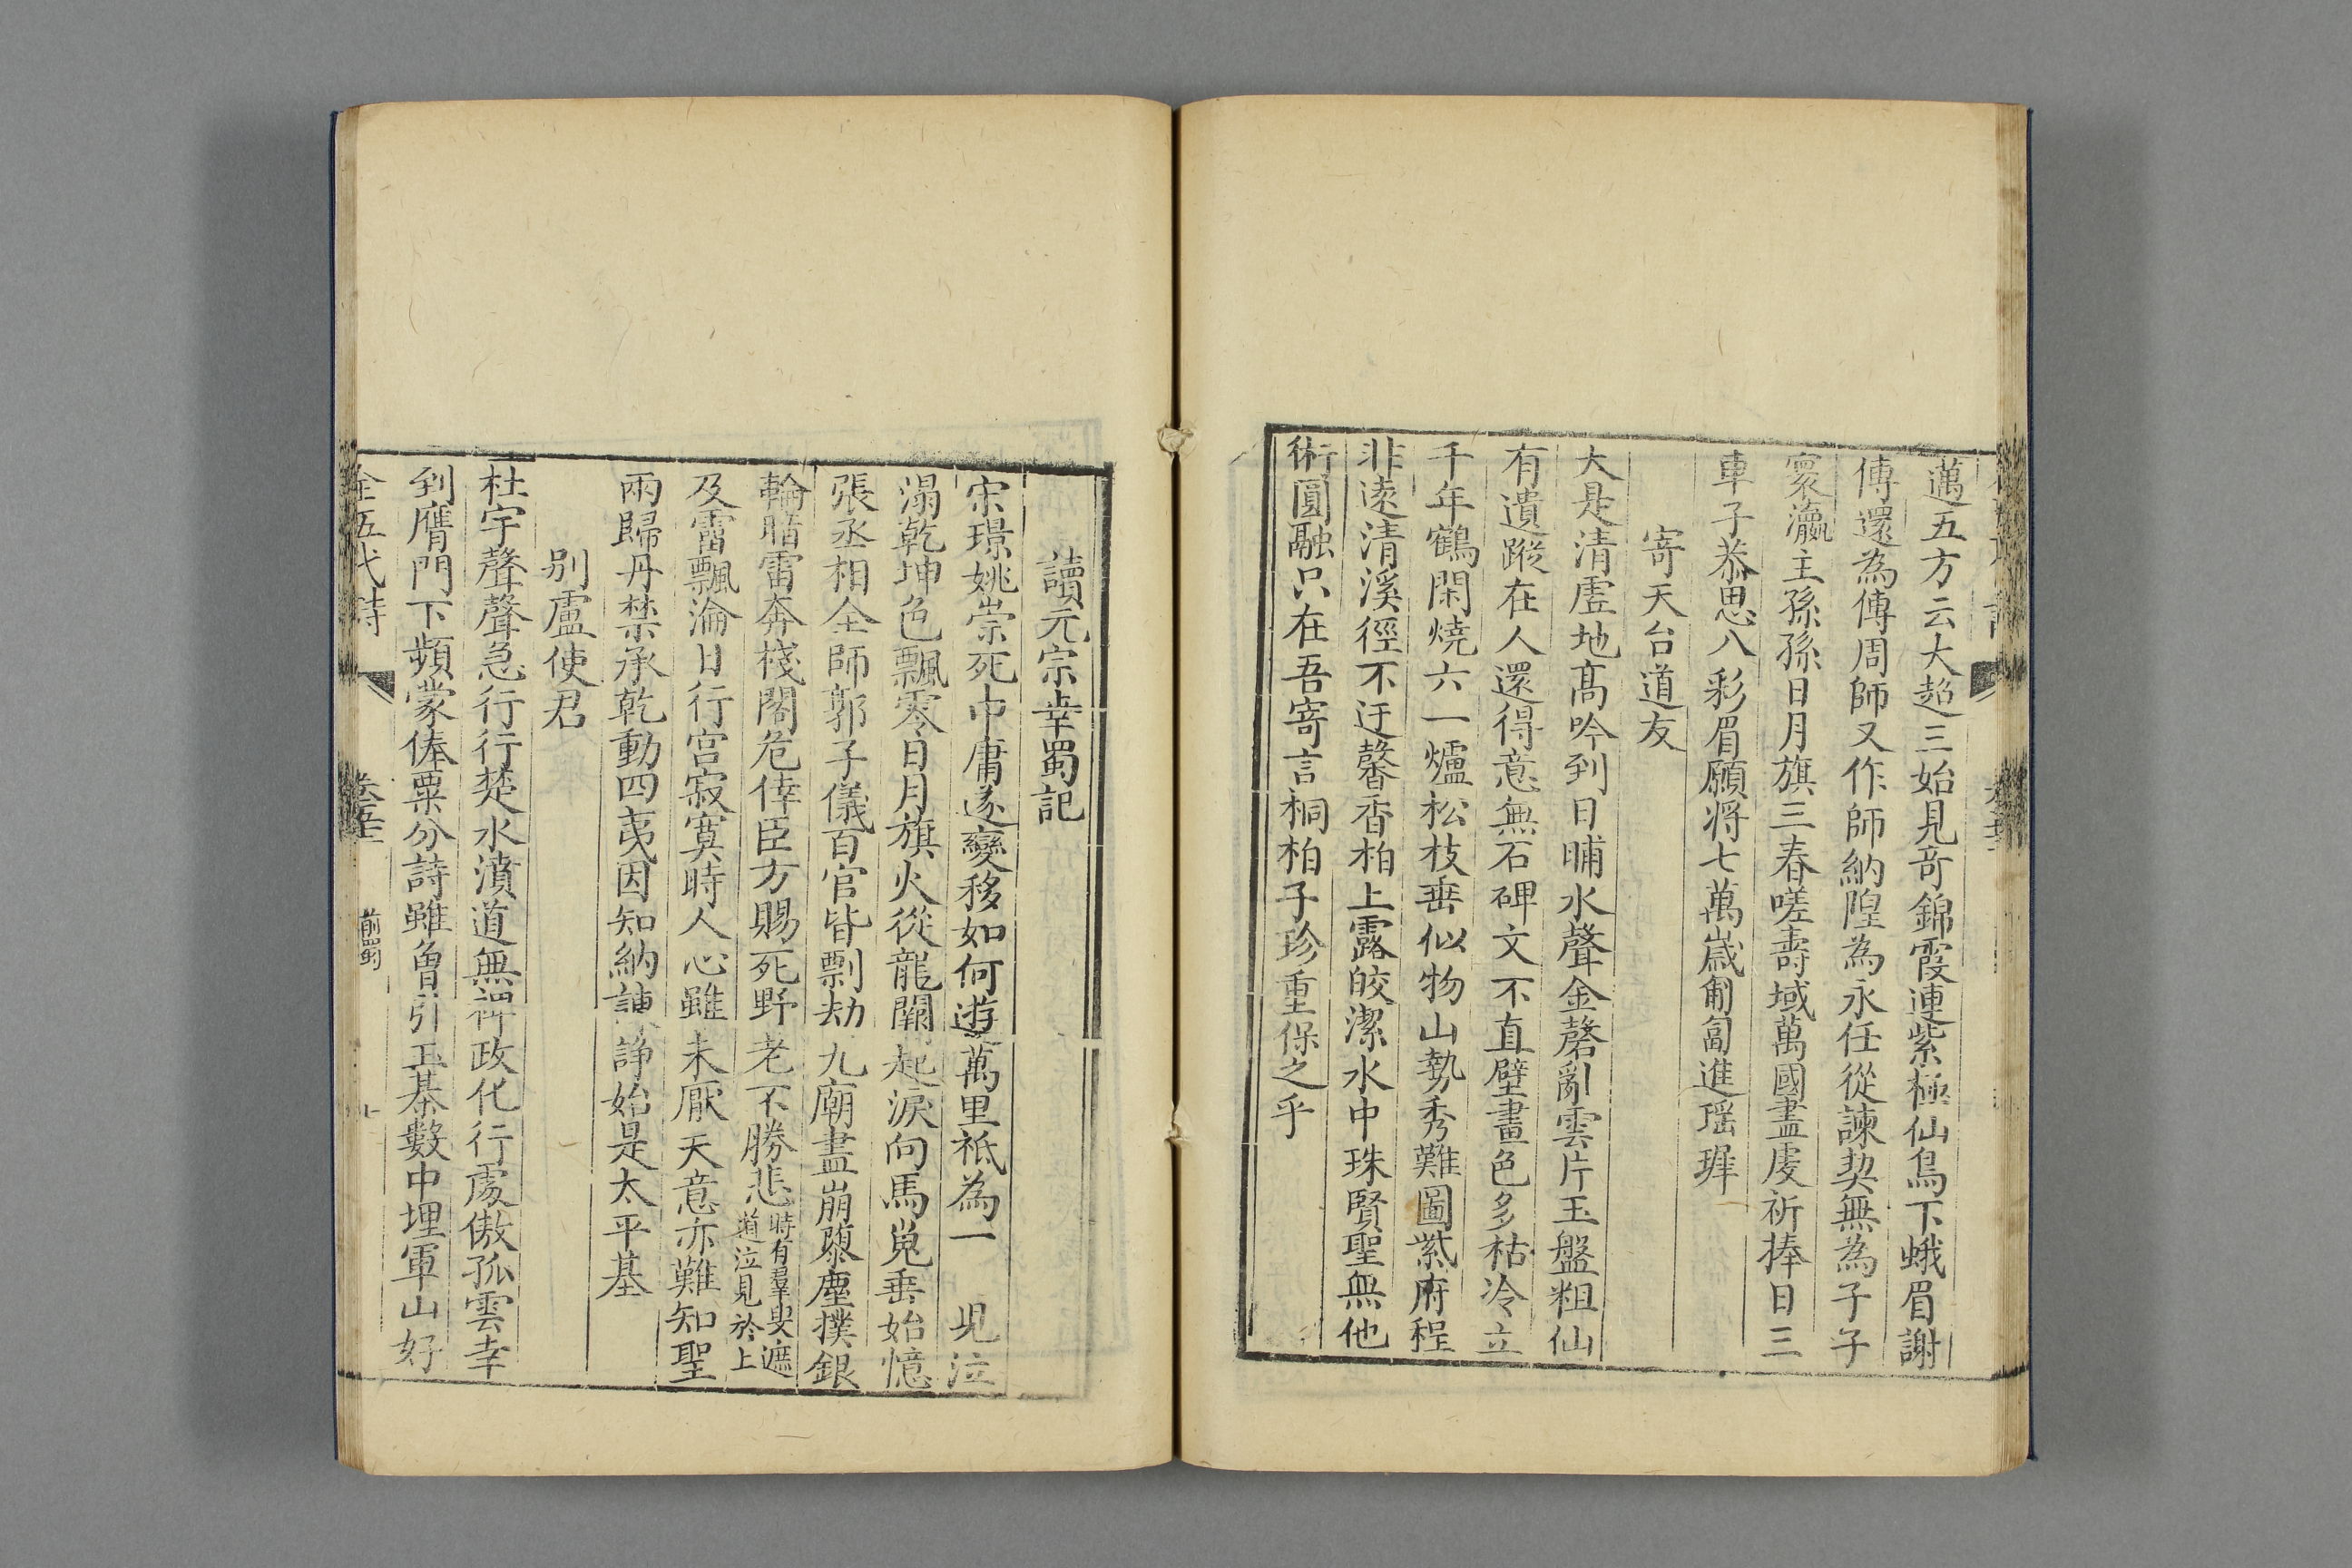 邁五方云大超三始見奇錦霞連紫極仙鳥下蛾眉謝
傅還為傅周師又作師納隍為永任從諫契無為子子
寰瀛主孫孫日月旗三春嗟壽域萬國盡虔祈捧日三
車子恭思八彩眉願將七萬歲匍匐進瑤墀
寄天台道友
大是清虛地高吟到日晡水聲金磬亂雲片玉盤粗仙
有遺蹤在人還得意無石碑文不直壁畫色多枯冷立
千年鶴閑燒六一爐松枝垂似物山勢秀難圖紫府程
非遠清溪徑不迂馨香柏上露皎潔水中珠賢聖無他
術圓融只在吾寄言桐柏子珍重保之乎
讀元宗幸蜀記
宋璟姚崇死中庸遂變移如何遊萬里祗為一 兒泣
溻乾坤色飄零日月旗火從龍闕起淚向馬嵬垂始憶
張丞相全師郭子儀百官皆剽劫九廟盡崩隳塵撲銀
輪暗雷奔棧閣危倖臣方賜死野老不勝悲時有羣叟遮
道泣見於上
及霤飄淪日行宮寂寞時人心雖未厭天意亦難知聖
兩歸丹禁承乾動四夷因知納諫諍始是太平基
別盧使君
杜宇聲聲急行行楚水濆道無裨政化行處傲孤雲幸
到膺門下頻蒙俸粟分詩雖曾引玉棊數中埋軍山好
全五代詩 卷五十 前蜀